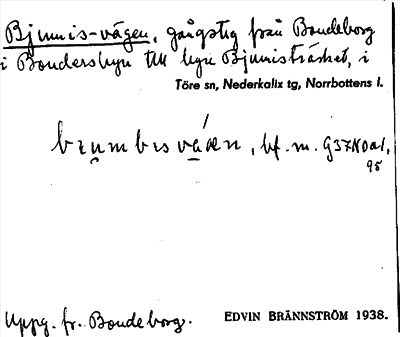 Bjumis-vägen, gångstig från Bondeborg
i Bondersbyn till byn Bjumisträsket, i
Töre sn, Nederkalix tg, Norrbottens l.
bf. m.
95
Uppg. fr. Bondeborg.
EDVIN BRÄNNSTRÖM 1938.